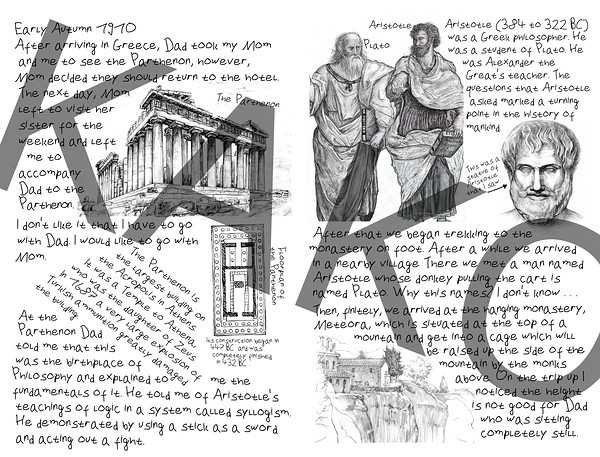 Early Autumn 1910
After arriving in Greece, Dad took my Mom
and me to see the Parthenon, however,
Mom decided they should return to the hotel.
The next day, Mom
left to visit her
sister for the
weekend and left
me to
accompany
Dad to the
Parthenon.
The Parthenon
I don't like it that I have to go
with Dad. I would like to go with
Mom.
The Parthenon is
the largest building on
the Acropolis in Athens.
It was a temple to Athena
who was the daughter of Zeus.
In 1687 a very large explosion of
Turkish ammunition greatly damaged
the building
Floorplan of
the Parthenon
Its conservation began in
447 BC and was
completely finished
432 BC!
At the
Parthenon Dad
told me that this
was the birthplace of
Philosophy and explained to me the
fundamentals of it. He told me of Aristotle's
teachings of logic in a system called syllogism.
He demonstrated by using a stick as a sword
and acting out a fight.
Aristotle
Plato
Aristotle (384 to 322 BC)
was a Greek philosopher. He
was a student of Plato. He
was Alexander the
Great's teacher. The
questions that Aristotle
asked marked a turning
point in the history of
mankind.
This was a
statue of
Aristotle
that I saw
After that we began trekking to the
monastery on foot. After a while we arrived
in a nearby village. There we met a man named
Aristotle whose donkey pulling the cart is
named Plato. Why this names? I don't know . . .
Then, finitely, we arrived at the hanging monastery,
Meteora, which is situated at the top of a
mountain and get into a cage which will
be raised up the side of the
mountain by the monks
above. On the trip up I
noticed the height
is not good for Dad
who was sitting
completely still.